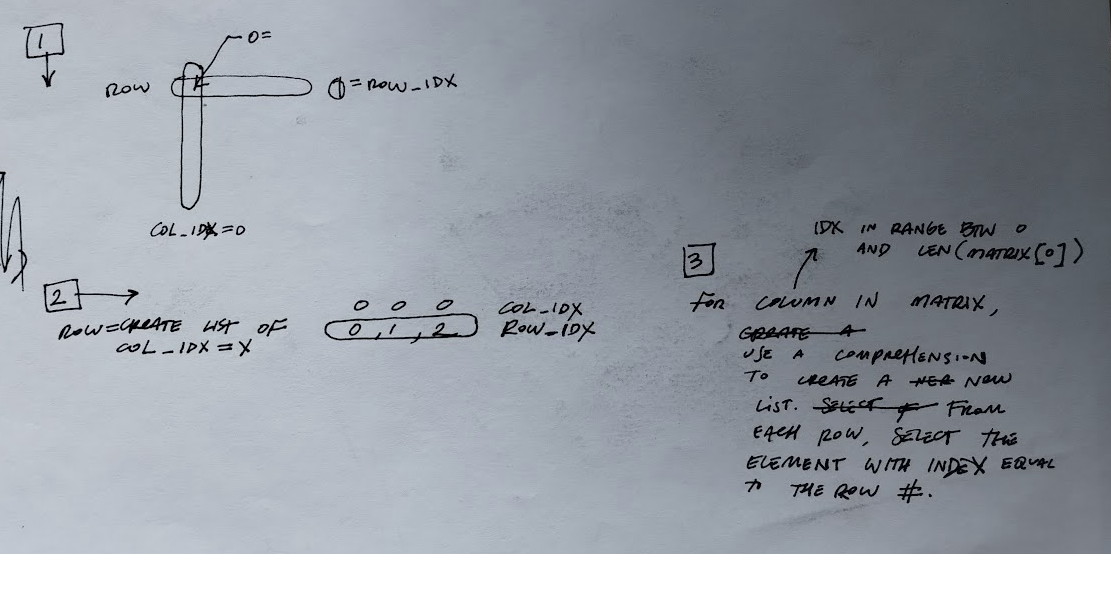 1
0=
ROW
0=ROW_IDX
COL_IDX=0
2
ROW=CREATE LIST OF
COL_IDX=X
0 0 0 COL_IDX
0, 1, 2 ROW_IDX
3
IDX IN RANGE BTW 0
AND LEN(MATRIX[0])
FOR COLUMN IN MATRIX,
CREATE A
USE A COMPREHENSION
TO CREATE A NEW
LIST. SELECT FROM
EACH ROW, SELECT THE
ELEMENT WITH INDEX EQUAL
TO THE ROW #.